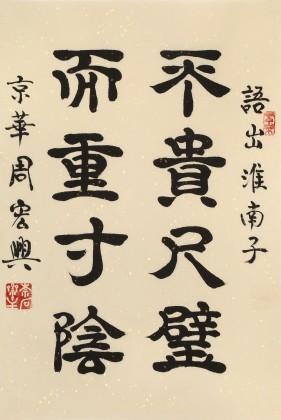 語出淮南子
不貴尺璧
而重寸陰
京華周宏興